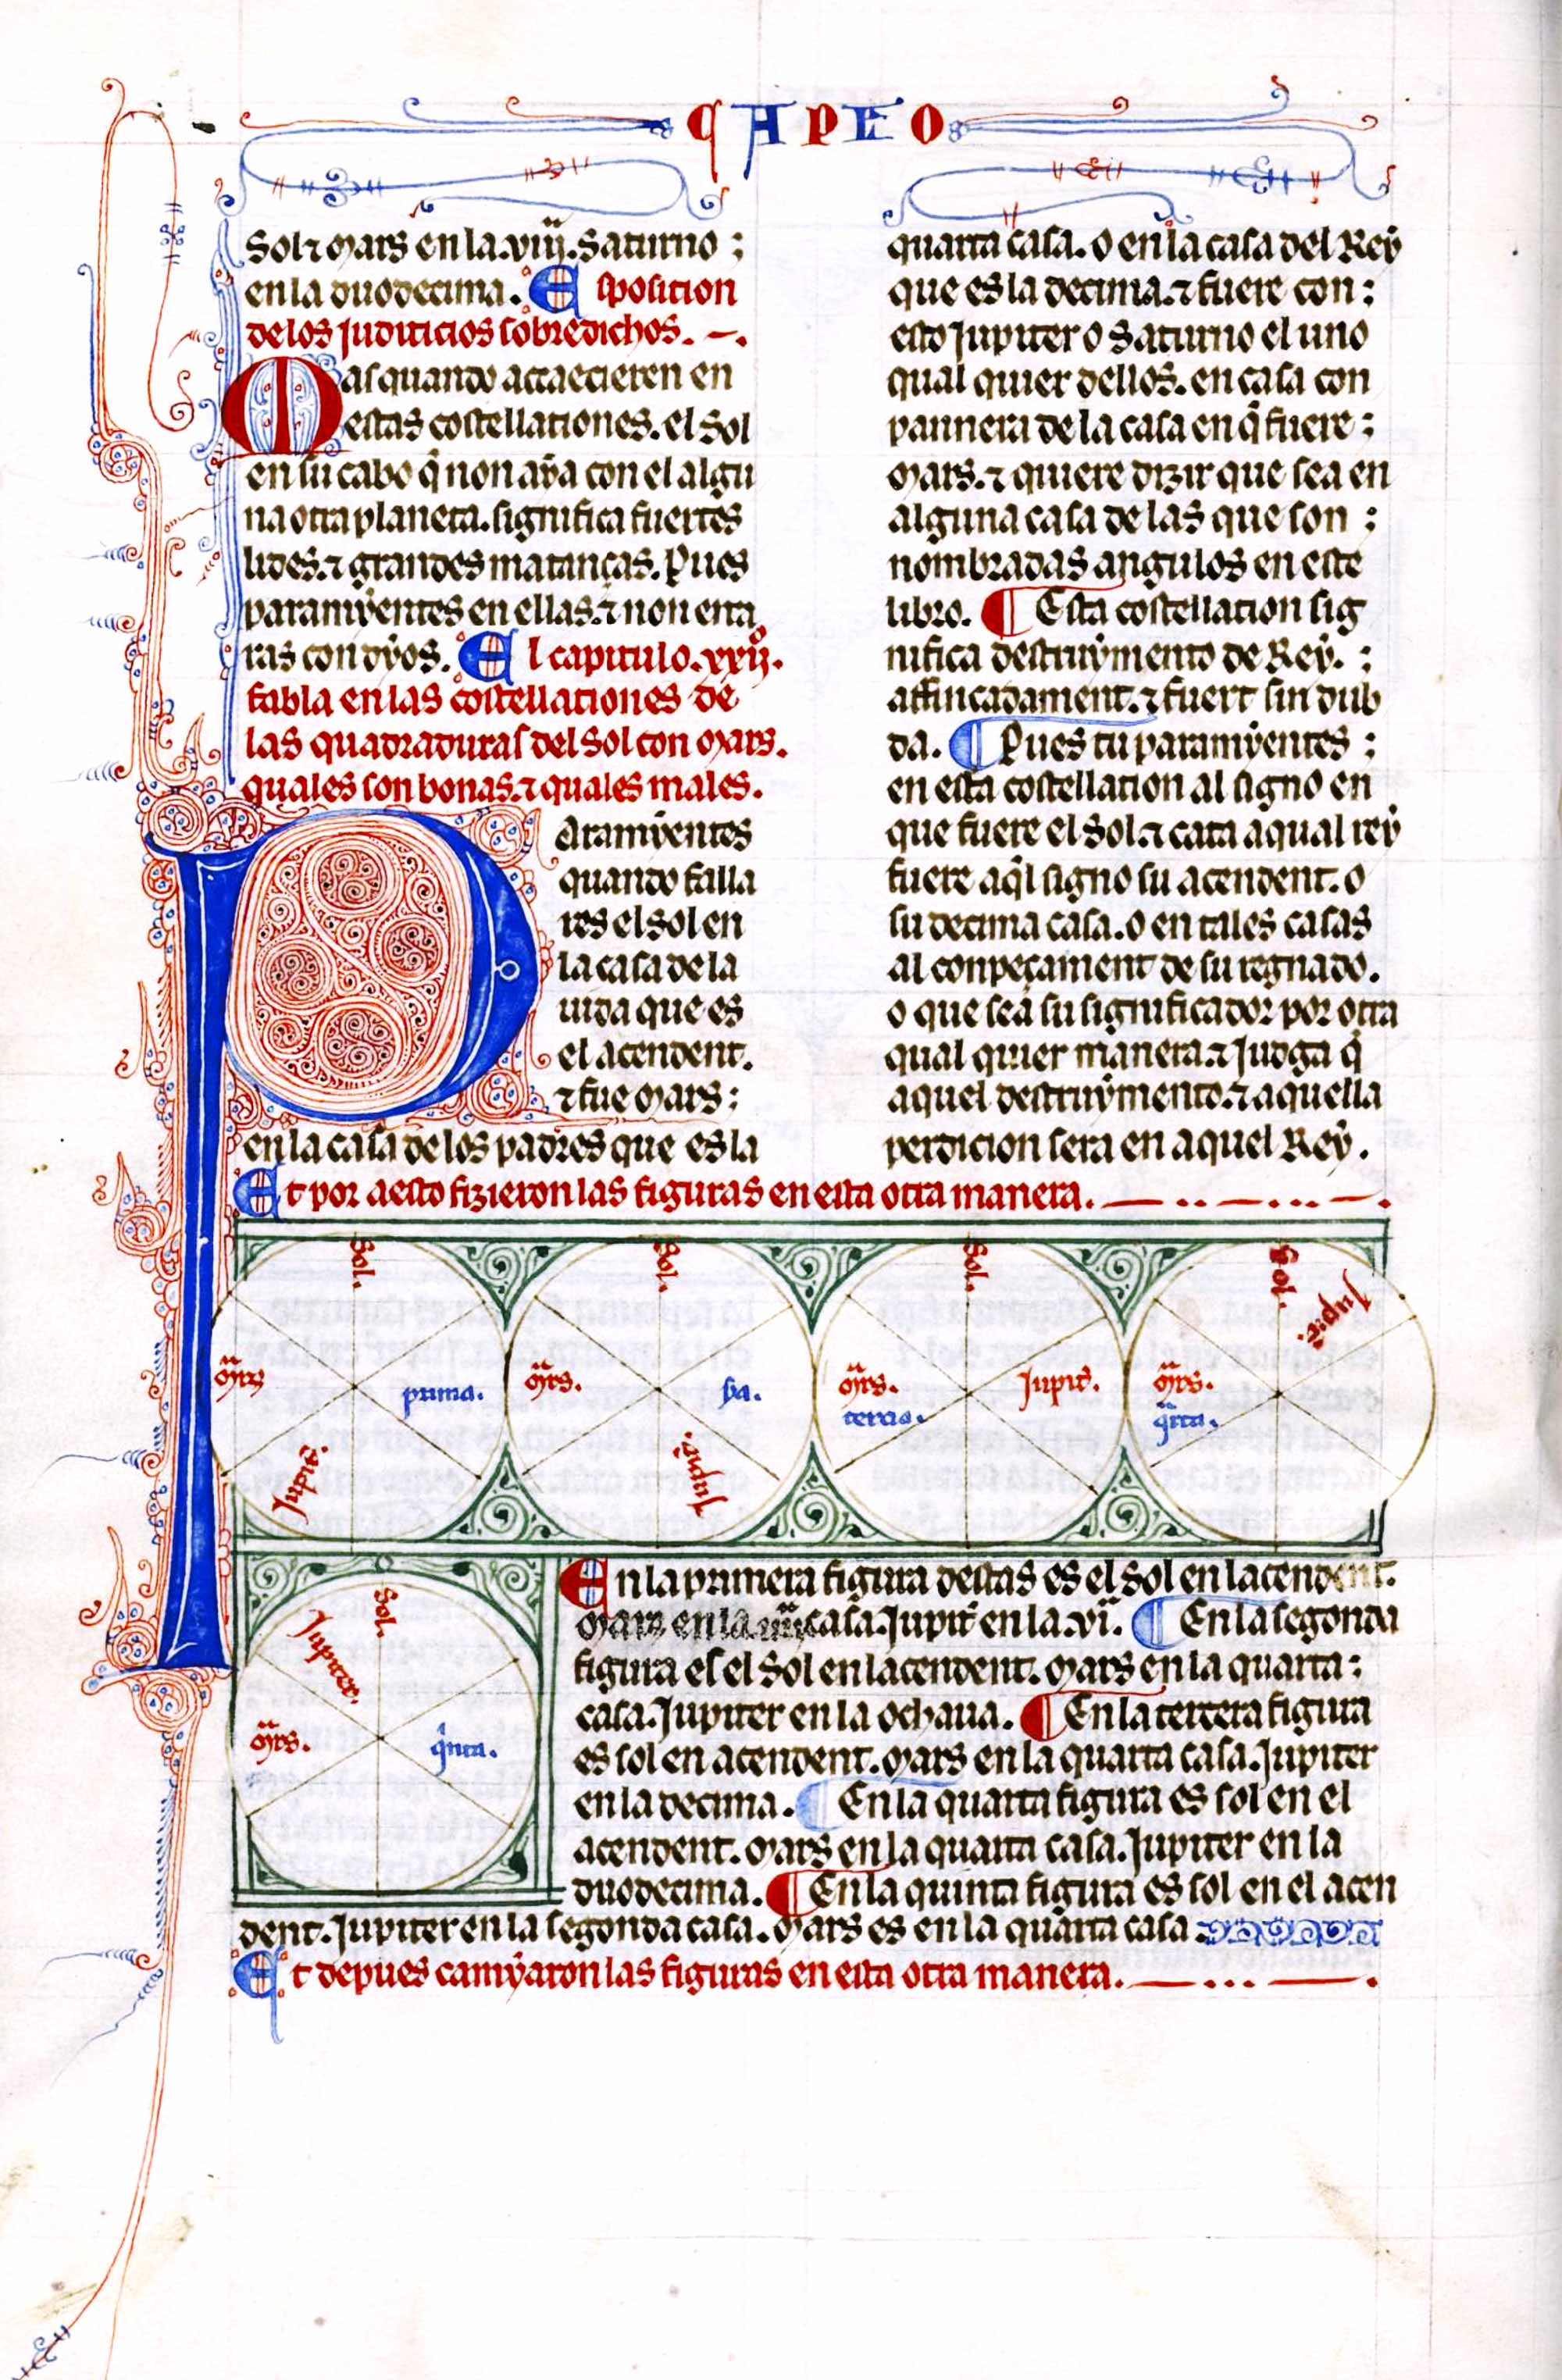 CAPEO
Sol ⁊ mars en la .viij. Saturno ;
en la duodecima. Esposicion
de los juditicios sobredichos.
Mas quando accaecieren en
estas costellationes. el Sol
en su cabo q̃ non aẏa con el algu
na otra planeta. significa fuertes
lides. ⁊ grandes matanças. Pues
paramẏentes en ellas. ⁊ non enta
ras con dẏos. El capitulo .xxijº.
fabla en las costellationes de
las quadraduras del Sol con mars.
quales son bonas. ⁊ quales males.
Paramẏentes
quando falla
res el sol en
la casa de la
uida que es
el acendent.
⁊ fue mars ;
en la casa de los padres que es la
quarta casa. o en la casa del Reẏ
que es la decima. ⁊ fuere con ;
esto Jupiter o Saturno el uno
qual quier dellos. en casa con
pannera de la casa en q̃ fuere ;
mars. ⁊ quiere dizir que sea en
alguna casa de las que son ;
nombradas angulos en este
libro. ¶ Esta costellation sig
nifica destruẏmento de Reẏ. ;
affincadament. ⁊ fuert sin dub
da. ¶ Pues tu paramẏentes ;
en esta costellation al signo en
que fuere el Sol. ⁊ cata a qual reẏ
fuere aq̃l signo su acendent. o
su decima casa. o en tales casas
al conpeçament de su regnado.
o que sea su significador por otra
qual quier manera. ⁊ Judga q̃
aquel destruẏmento. ⁊ aquella
perdicion sera en aquel Reẏ.
Et por aesto fizieron las figuras en esta otra manera.
Sol.
mr̃s
prima.
Jupit̃.
Sol.
mr̃s.
sͣda.
Jupit̃.
Sol.
mr̃s.
tercia.
Jupit̃.
Sol.
Jupit̃.
mr̃s.
q̃rta.
Sol.
Jupiter.
mr̃s.
q̃nta.
En la primera figura destas es el Sol en lacendent.
mars en la .iiij. casa. Jupit̃ en la .vi. ¶ En la segonda
figura es el Sol en lacendent. mars en la quarta ;
casa. Jupiter en la ochaua. ¶ En la tercera figura
es sol en acendent. mars en la quarta casa. Jupiter
en la decima. ¶ En la quarta figura es sol en el
acendent. mars en la quarta casa. Jupiter en la
duodecima. ¶ En la quinta figura es sol en el acen
dent. Jupiter en la segonda casa. mars es en la quarta casa.
Et depues camẏaron las figuras en esta otra manera.